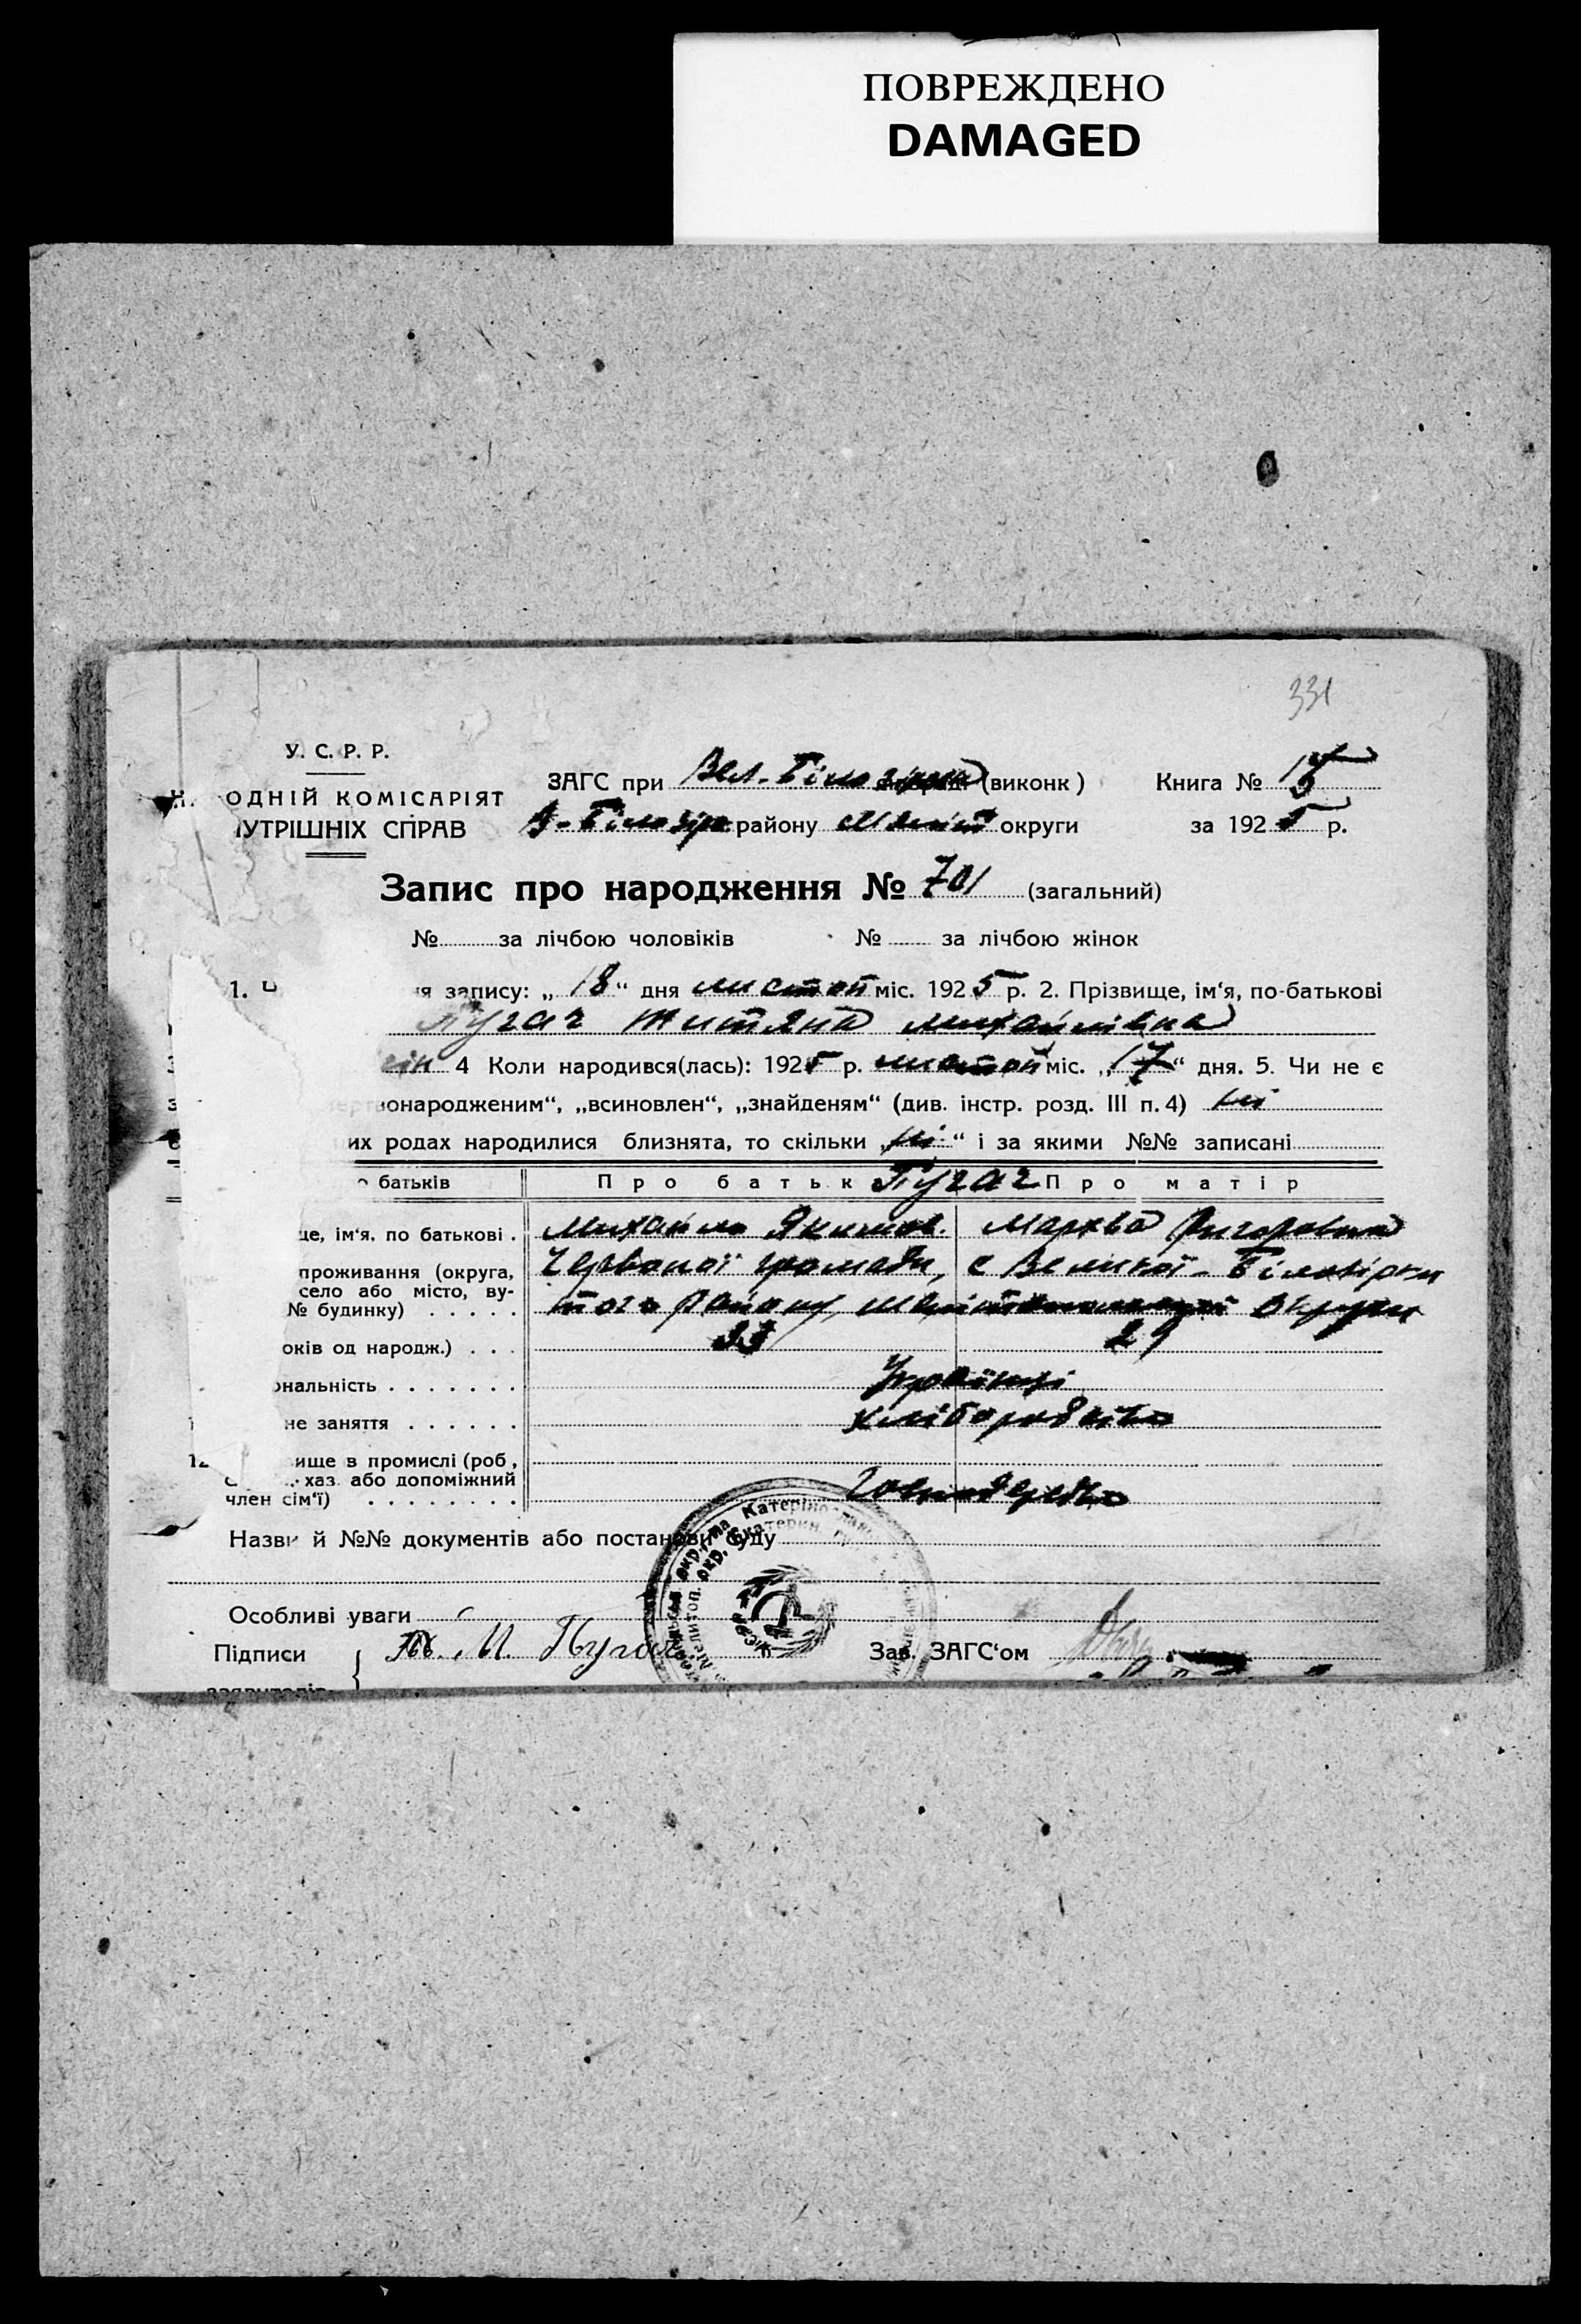 ПОВРЕЖДЕНО
DAMAGED
331
У. С. Р. Р.
ОДНІЙ КОМІСАРІЯТ
УТРІШНІХ СПРАВ
ЗАГС при Вел-Білозірськ (виконк) Книга № 15
В-Білозірс району Меліт округи за 1925 р.
Запис про народження № 701 (загальний)
№ за лічбою чоловіків № за лічбою жінок
1. я запису: „18“ дня листоп міс. 1925 р. 2. Прізвище, ім‘я, по-батькові
Пугач Титяна Михайлівна
4 Коли народився(лась): 1925 р. листоп міс. „17“ дня. 5. Чи не є
онародженим“, „всиновлен“, „знайденям“ (див. інстр. розд. III п. 4) ні
их родах народилися близнята, то скільки „ні“ і за якими №№ записані
батьків Про батьк Пугач Про матір
ще, ім‘я, по батькові . Михайло Якимов. Мархва Григоровна
проживання (округа, Червоної громади, с Великої-Білозірки
село або місто, ву-
№ будинку) . . . . . того району, Мелітопольської округи
оків од народж.) . . . 33 29
ональність . . . . . . . Українці
не заняття . . . . . . хліборобство
12 ище в промислі (роб,
хаз. або допоміжний
член сім‘ї) . . . . . . . .
Назви й №№ документів або постанови суду
Особливі уваги
Підписи М. Пугач Зав. ЗАГС‘ом